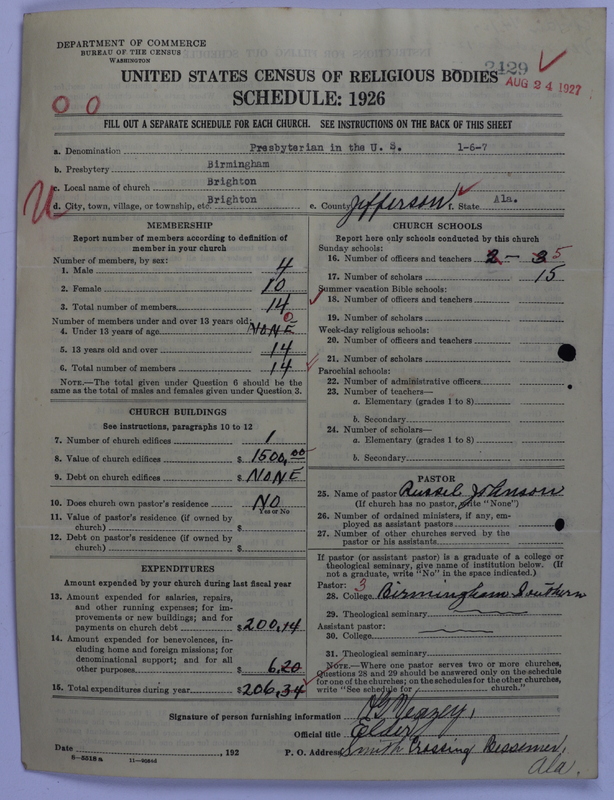 DEPARTMENT OF COMMERCE
BUREAU OF THE CENSUS
WASHINGTON
2429
AUG 24 1927
UNITED STATES CENSUS OF RELIGIOUS BODIES
SCHEDULE: 1926
0 0
FILL OUT A SEPARATE SCHEDULE FOR EACH CHURCH. SEE INSTRUCTIONS ON THE BACK OF THIS SHEET
a. Denomination Presbyterian in the U. S. 1-6-7
b. Presbytery Birmingham
c. Local name of church Brighton
d. City, town, village, or township, etc. Brighton e. County Jefferson f. State Ala.
U
MEMBERSHIP
Report number of members according to definition of
member in your church
Number of members, by sex:
1. Male 4
2. Female 10
3. Total number of members 14
Number of members under and over 13 years old: 0
4. Under 13 years of age NONE
5. 13 years old and over 14
6. Total number of members 14
NOTE.—The total given under Question 6 should be
same as the total of males and females given under Question 3.
CHURCH BUILDINGS
See instructions, paragraphs 10 to 12
7. Number of church edifices 1
8. Value of church edifices $ 1500,00
9. Debt on church edifices $ NONE
10. Does church own pastor's residence NO
Yes or No
11. Value of pastor's residence (if owned by
church) $
12. Debt on pastor's residence (if owned by
church) $
EXPENDITURES
Amount expended by your church during last fiscal year
13. Amount expended for salaries, repairs,
and other running expenses; for im-
provements or new buildings; and for
payments on church debt $ 200,14
14. Amount expended for benevolences, in-
cluding home and foreign missions; for
denominational support; and for all
other purposes $ 6.20
15. Total expenditures during year $ 206,34
CHURCH SCHOOLS
Report here only schools conducted by this church
Sunday schools:
16. Number of officers and teachers 2 — 3 5
17. Number of scholars 15
Summer vacation Bible schools:
18. Number of officers and teachers
19. Number of scholars
Week-day religious schools:
20. Number of officers and teachers
21. Number of scholars
Parochial schools:
22. Number of administrative officers
23. Number of teachers—
a. Elementary (grades 1 to 8)
b. Secondary
24. Number of scholars—
a. Elementary (grades 1 to 8)
b. Secondary
PASTOR
25. Name of pastor Russel Johnson
(If church has no pastor, write "None")
26. Number of ordained ministers, if any, em-
ployed as assistant pastors
27. Number of other churches served by the
pastor or his assistants
If pastor (or assistant pastor) is a graduate of a college or
theological seminary, give name of institution below. (If
not a graduate, write "No" in the space indicated.)
Pastor: 3
28. College Birmingham Southern
29. Theological seminary
Assistant pastor:
30. College
31. Theological seminary
NOTE.—Where one pastor serves two or more churches,
Questions 28 and 29 should be answered only on the schedule
for one of the churches; on the schedules for the other churches,
write "See schedule for church."
Signature of person furnishing information Veazey,
Official title Elder
Date , 192 P. O. Address Smith Crossing Bessemer,
Ala.
8-5518a 11-